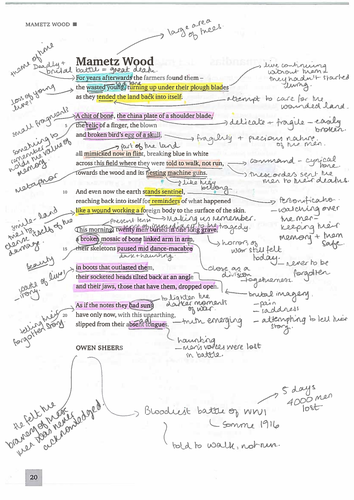 MAMETZ WOOD
large area
of trees.
Mametz Wood
battle = great death
For years afterwards the farmers found them –
the wasted young, turning up under their plough blades
as they tended the land back into itself.
live continuing
without them –
they hadn't started
living.
attempt to care for the
wounded land.
A chit of bone, the china plate of a shoulder blade,
the relic of a finger, the blown
and broken bird's egg of a skull,
small fragments
delicate – fragile – easily
broken.
fragility + precious nature
of the men
part of the land
all mimicked now in flint, breaking blue in white
across this field where they were told to walk, not run,
towards the wood and its nesting machine guns.
metaphor
command – cynical
tone
these orders sent the
men to their deaths.
like they
belong
And even now the earth stands sentinel,
reaching back into itself for reminders of what happened
like a wound working a foreign body to the surface of the skin.
personification
watching over
the men –
keeping their
memory + them
safe
making us remember.
present tense
This morning, twenty men buried in one long grave,
a broken mosaic of bone linked arm in arm,
their skeletons paused mid dance-macabre
tragedy
horrors of
war still felt
today.
never to be
forgotten
in boots that outlasted them,
their socketed heads tilted back at an angle
and their jaws, those that have them, dropped open.
close as a
division
togetherness
brutal imagery
- pain
- sadness
- attempting to tell their
story.
As if the notes they had sung
have only now, with this unearthing,
slipped from their absent tongues.
to lighten the
darker moments
of war.
truth emerging
haunting
– men's voices were lost
in battle.
OWEN SHEERS
He felt the
bravery of these
men was never
acknowledged.
Bloodiest battle of WW1
Somme 1916
5 days
4000 men
lost
told to walk, not run.
20